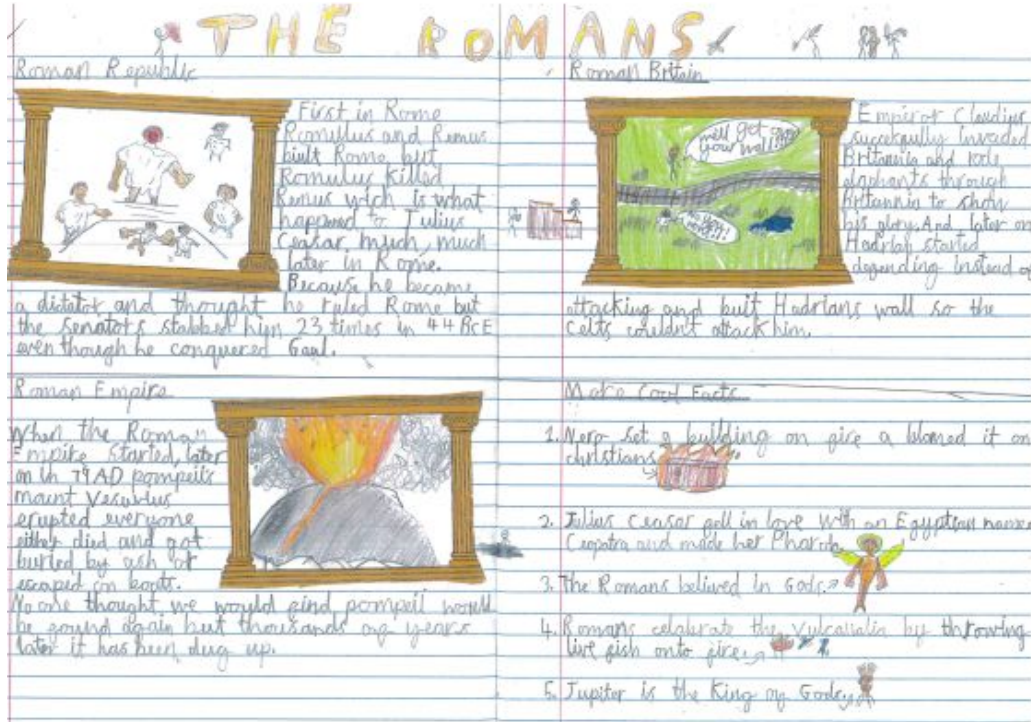 THE ROMANS
Roman Republic
First in Rome
Romulus and Remus
built Rome but
Romulus killed
Remus wich is what
happened to Julius
Ceasar, much, much
later in Rome.
Because he became
a dictator and thought he ruled Rome but
the senators stabbed him 23 times in 44 BCE
even though he conquered Gaul.
Roman Empire
When the Roman
Empire started, later
on in 79AD pompeii's
mount Vesuvius
erupted everyone
either died and got
buried by ash or
escaped on boats.
No one thought we would find pompeii would
be found again but thousands of years
later it has been dug up.
Roman Britain
we'll get over
your wall!!!
Emperor Claudius
succesfully invaded
Britannia and rode
elaphants through
Britannia to show
his glory. And later on
Hadrian started
defending instead of
attacking and built Hadrians wall so the
Celts couldn't attack him.
More Cool Facts
1. Nero set a building on fire a blamed it on
christians
2. Julius Ceasar fell in love with an Egyptian named
Cleopatra and made her
3. The Romans belived in Gods.
4. Romans celabrate the by throwing
live fish onto fire.
5. Jupiter is the King of Gods.